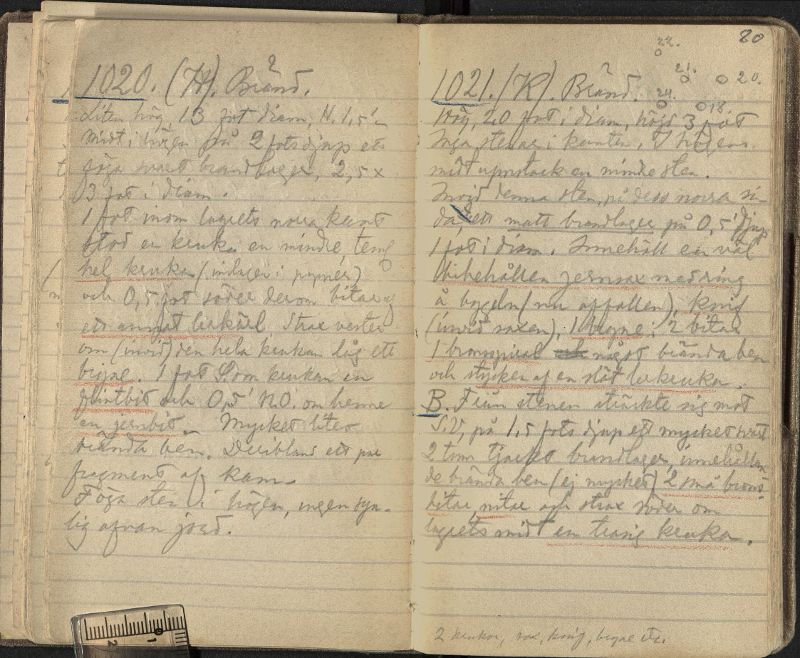 1020. (H). Bränd.
Liten hög, 13 fot diam, H. 1,5'.
Midt i högen på 2 fots djup ett
svart brandlager, 2,5 x
3 fot i diam.
1 fot inom lagrets norra kant
stod en kruka en mindre, temg
hel kruka (
och 0,5 fot söder derom bitar af
ett annat lerkärl. Strax vester
om (invid) den hela krukan låg ett
bryne. 1 fot S. om krukan en
flintbit och 0,5' N.O. om henne
en jernbit. Mycket litet
brända ben. Deribland ett par
fragment af kam.
Föga sten i högen, ingen syn-
lig ofvan jord.
80
22.
21.
20.
24.
18.
1021. (K). Bränd.
Hög, 20 fot i diam, höjd 3 fot
Inga stenar i kanten. I högens
midt uppstack en mindre sten.
Invid denna sten, på dess norra si-
da, ett matt brandlager på 0,5' djup
1 fot i diam. Innehöll en väl
bibehållen jernsax med ring
å bygeln (nu affallen), knif
(invid saxen), 1 bryne i 2 bitar
1 bronsspiral något brända ben
och stycken af en slät lerkruka.
B. Från stenen sträckte sig mot
S.V, på 1,5 fots djup ett mycket svart
2 tum tjockt brandlager, innehållan-
de brända ben (ej mycket) 2 små brons-
bitar, nitar och strax söder om
lagrets midt en trasig kruka.
2 krukor, sax, knif, bryne etc.